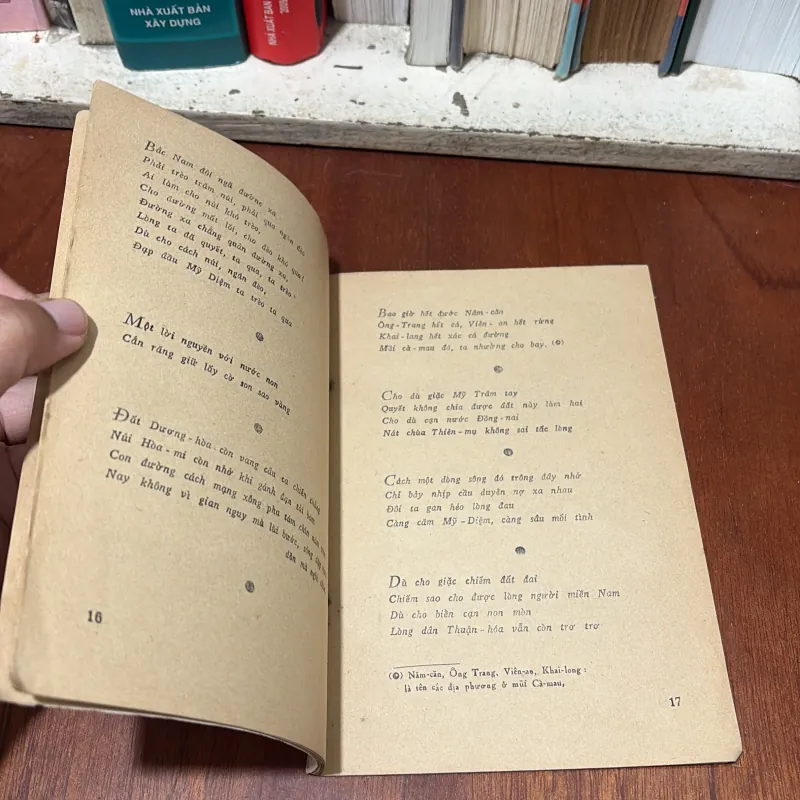 NHÀ XUẤT BẢN
XÂY DỰNG
NHÀ XUẤT BẢN
Bắc Nam đôi ngã đường xa
Phải trèo trăm núi, phải qua ngàn đèo
Ai làm cho núi khó trèo,
Cho đường mất lối, cho đèo khó qua!
Đường xa chẳng quản đường xa,
Lòng ta đã quyết, ta qua, ta trèo-
Dù cho cách núi, ngăn đèo,
Đạp đầu Mỹ Diệm ta trèo ta qua
Một lời nguyền với nước non
Cắn răng giữ lấy cờ son sao vàng
Đất Dương-hòa còn vang câu ta chiến thắng
Núi Hòa-mi còn nhớ khi gánh đạn tải
Con đường cách mạng xông pha tám chín năm
Nay không vì gian nguy mà lùi bước, sông
dân mà
16
Bao giờ hết đước Năm-căn
Ông-Trang hết cá, Viên-an hết rừng
Khai-long hết xác cá đường
Mũi cà-mau đó, ta nhường cho bay. (*)
Cho dù giặc Mỹ Trăm tay
Quyết không chia được đất này làm hai
Cho dù cạn nước Đồng-nai
Nát chùa Thiên-mụ không sai tấc lòng
Cách một dòng sông đó trông đây nhớ
Chỉ bảy nhịp cầu duyên nợ xa nhau
Đôi ta gan héo lòng đau
Càng căm Mỹ-Diệm, càng sâu mối tình
Dù cho giặc chiếm đất đai
Chiếm sao cho được lòng người miền Nam
Dù cho biển cạn non mòn
Lòng dân Thuận-hóa vẫn còn trơ trơ
(*) Năm-căn, Ông Trang, Viên-an, Khai-long :
là tên các địa phương ở mũi Cà-mau,
17